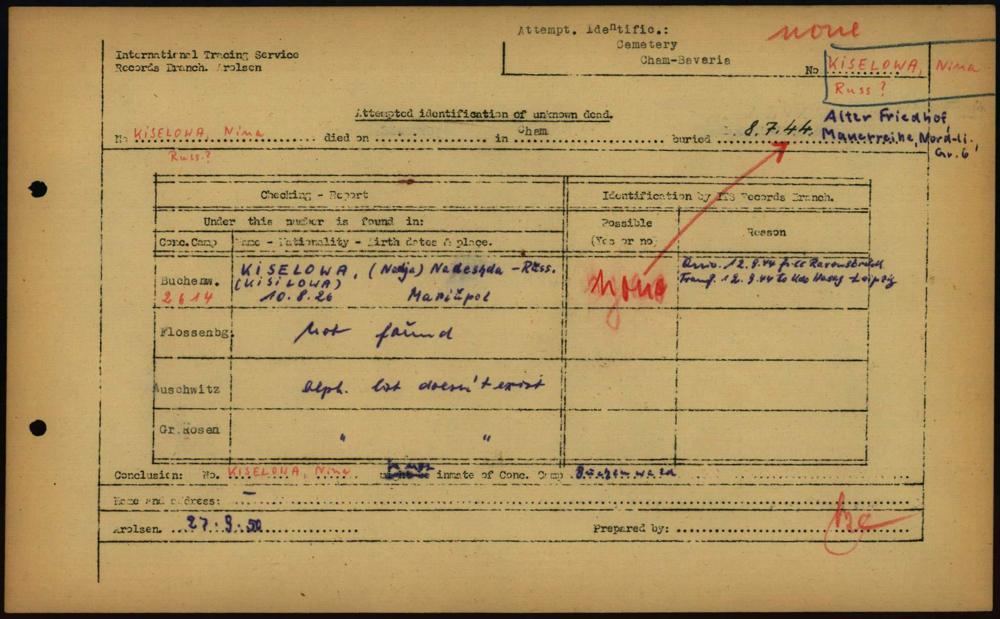 Attempt. Identific.:
none
Cemetery
Cham-Bavaria
International Tracing Service
Records Branch. Arolsen
No KISELOWA, Nina
Russ?
Attempted identification of unknown dead.
No KISELOWA, Nina died on in Cham buried 8.7.44. Alter Friedhof
Mauerreihe, Nord-li,
Gr. 6
Russ?
Checking - Report
Identification by ITS Records Branch.
Under this number is found in:
Possible
(Yes or no)
Reason
Conc. Camp
Name - Nationality - Birth dates & place.
Buchenw.
2614
KISELOWA, (Nadja) Nadeshda - Russ.
(KISILOWA)
10.8.26 Mariupol
none
12.9.44 Ravensbrück
Transf. 12.9.44 to Hasag Leipzig
Flossenbg.
Not found
Auschwitz
Alph. list doesn't exist
Gr. Rosen
" "
Conclusion: No. KISELOWA, Nina inmate of Conc. Camp Buchenwald
Name and address: -
Arolsen. 27.9.50
Prepared by: